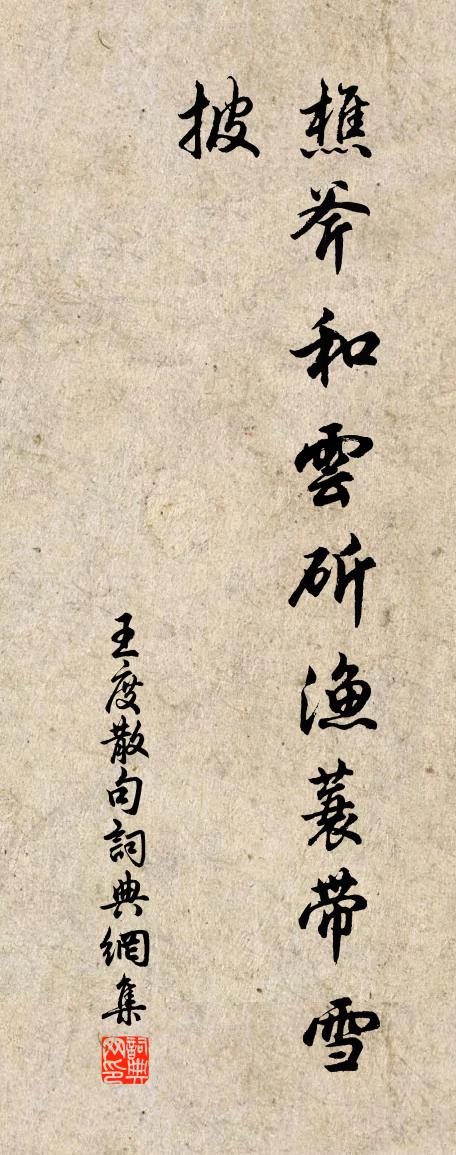 樵斧和雲斫漁蓑帶雪
披
王度散句詞典網集
詞典网印